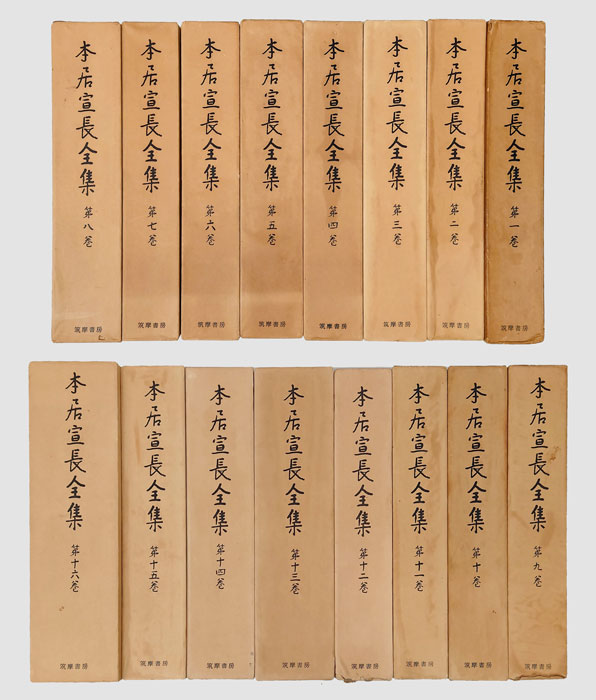 本居宣長全集 第一巻
筑摩書房
本居宣長全集 第二巻
筑摩書房
本居宣長全集 第三巻
筑摩書房
本居宣長全集 第四巻
筑摩書房
本居宣長全集 第五巻
筑摩書房
本居宣長全集 第六巻
筑摩書房
本居宣長全集 第七巻
筑摩書房
本居宣長全集 第八巻
筑摩書房
本居宣長全集 第九巻
筑摩書房
本居宣長全集 第十巻
筑摩書房
本居宣長全集 第十一巻
筑摩書房
本居宣長全集 第十二巻
筑摩書房
本居宣長全集 第十三巻
筑摩書房
本居宣長全集 第十四巻
筑摩書房
本居宣長全集 第十五巻
筑摩書房
本居宣長全集 第十六巻
筑摩書房